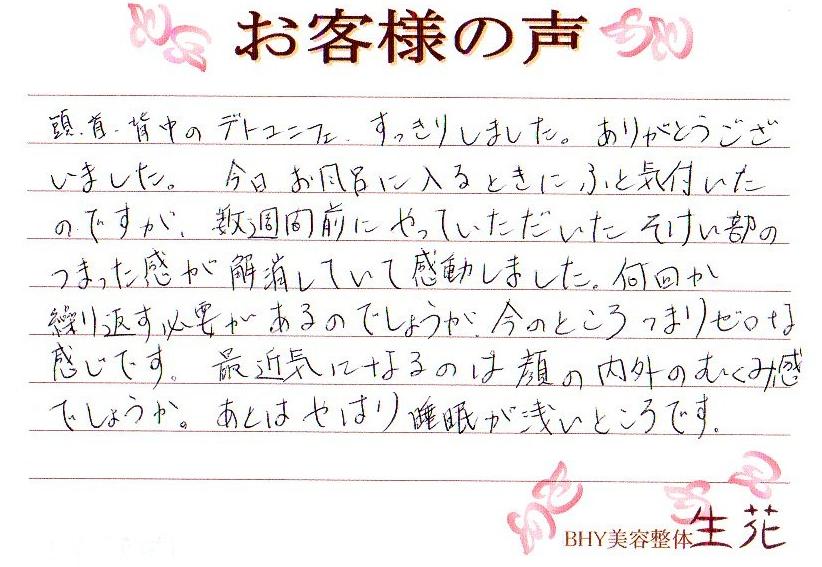 お客様の声
頭、首、背中のデトユニフェ、すっきりしました。ありがとうござ
いました。 今日お風呂に入るときにふと気付いた
のですが、数週間前にやっていただいたそけい部の
つまった感が解消していて感動しました。何回か
繰り返す必要があるのでしょうが、今のところつまりゼロな
感じです。最近気になるのは顔の内外のむくみ感
でしょうか。あとはやはり睡眠が浅いところです。
BHY美容整体 生花